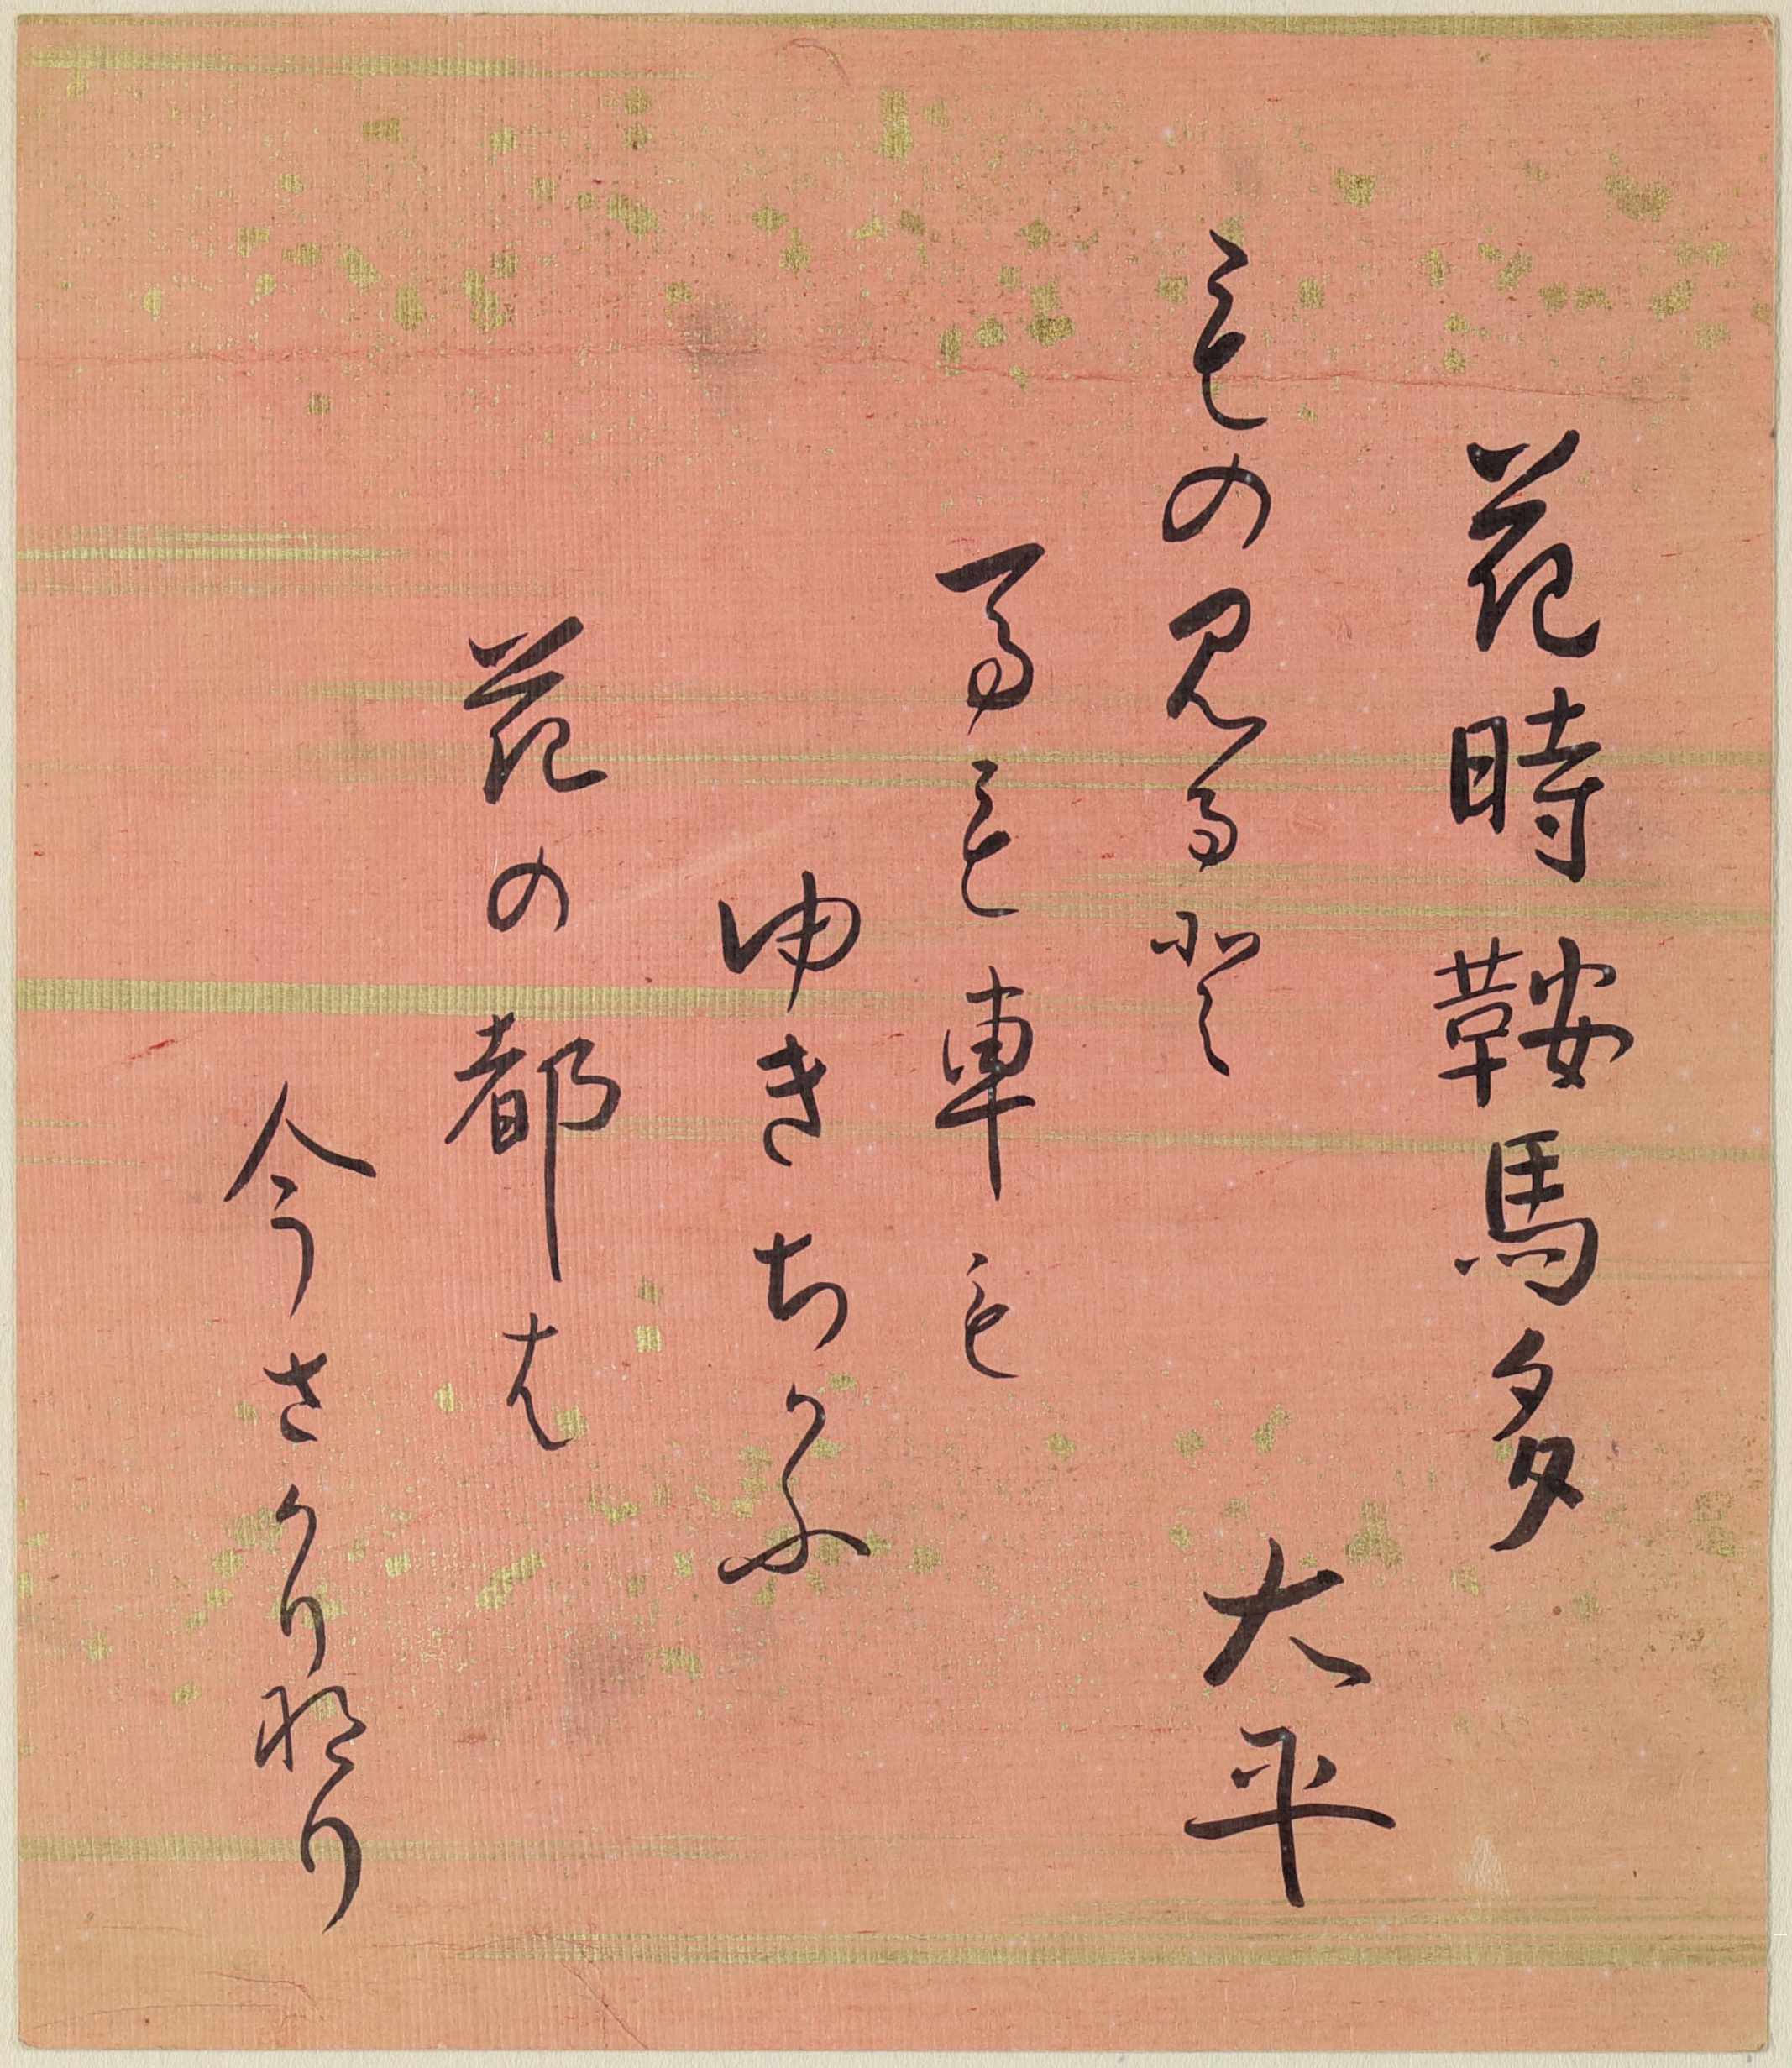 花時鞍馬多
大平
もの見ると
馬も車も
ゆきちかふ
花の都は
今さかりなり